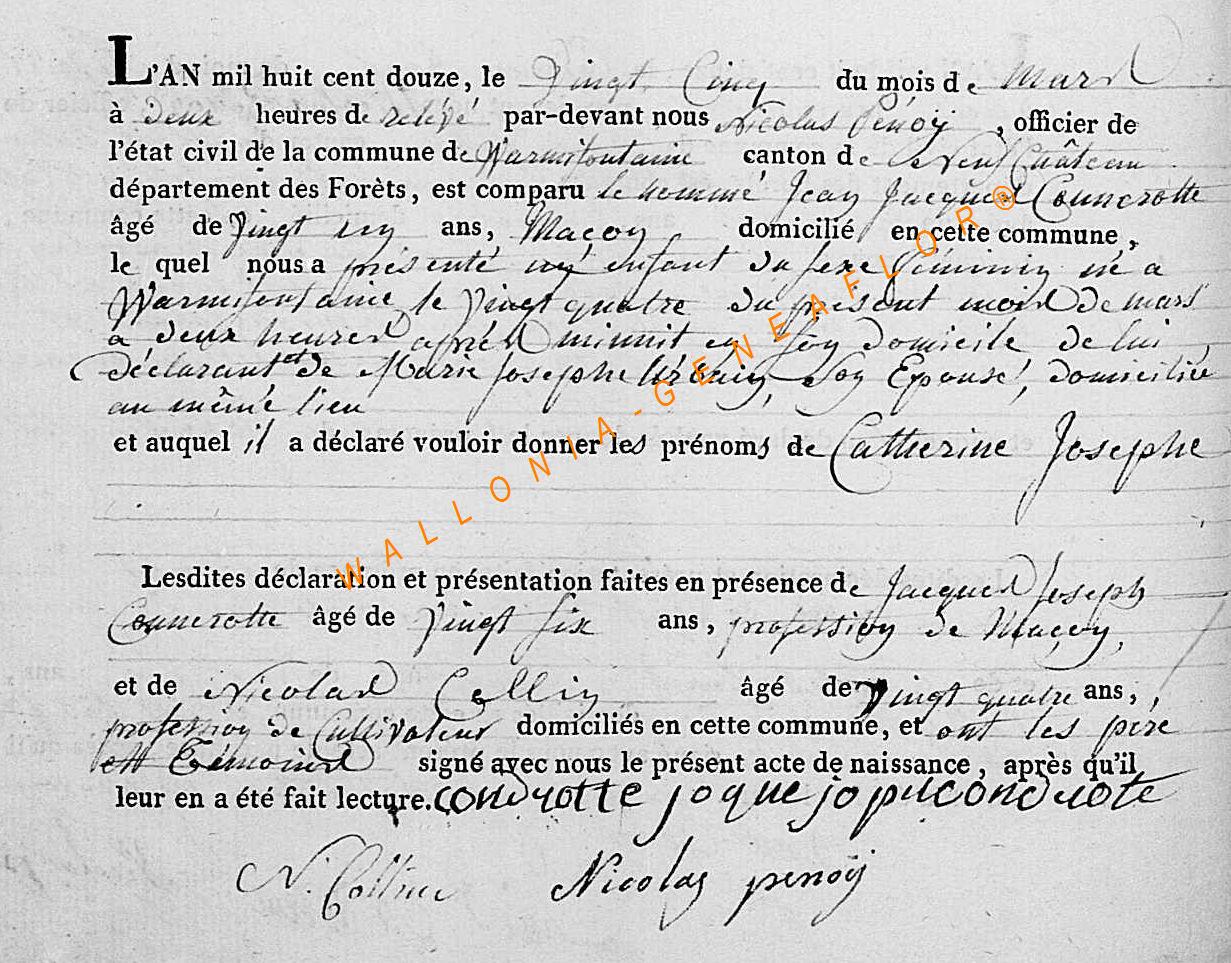 L'AN mil huit cent douze, le Vingt Cinq du mois de Mars
à deux heures de relévé par-devant nous Nicolas Pénoÿ, officier de
l'état civil de la commune de Warmifontaine canton de Neuf Château
département des Forêts, est comparu le nommé Jean Jacques Connerotte
âgé de Vingt un ans, Maçon domicilié en cette commune,
le quel nous a présenté un enfant du sexe féminin né a
Warmifontaine le Vingt quatre du présent mois de mars
a deux heures après minuit en son domicile de lui
déclarant et de Marie Josephe Urbain, Son Epouse, domiciliée
au même lieu
et auquel il a déclaré vouloir donner les prénoms de Catherine Josephe
Lesdites déclaration et présentation faites en présence de Jacques Joseph
Connerotte âgé de Vingt six ans, profession de Maçon,
et de Nicolas Collin âgé de vingt quatre ans,
profession de Cultivateur domiciliés en cette commune, et ont les père
et Témoins signé avec nous le présent acte de naissance, après qu'il
leur en a été fait lecture.
N. Collin Nicolas penoÿ
WALLONIA-GENEAFLOR®